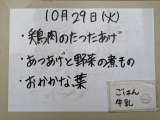 10月29日(火)
・鶏肉のたつたあげ
・あつあげと野菜の煮もの
・おかかな葉
ごはん
牛乳